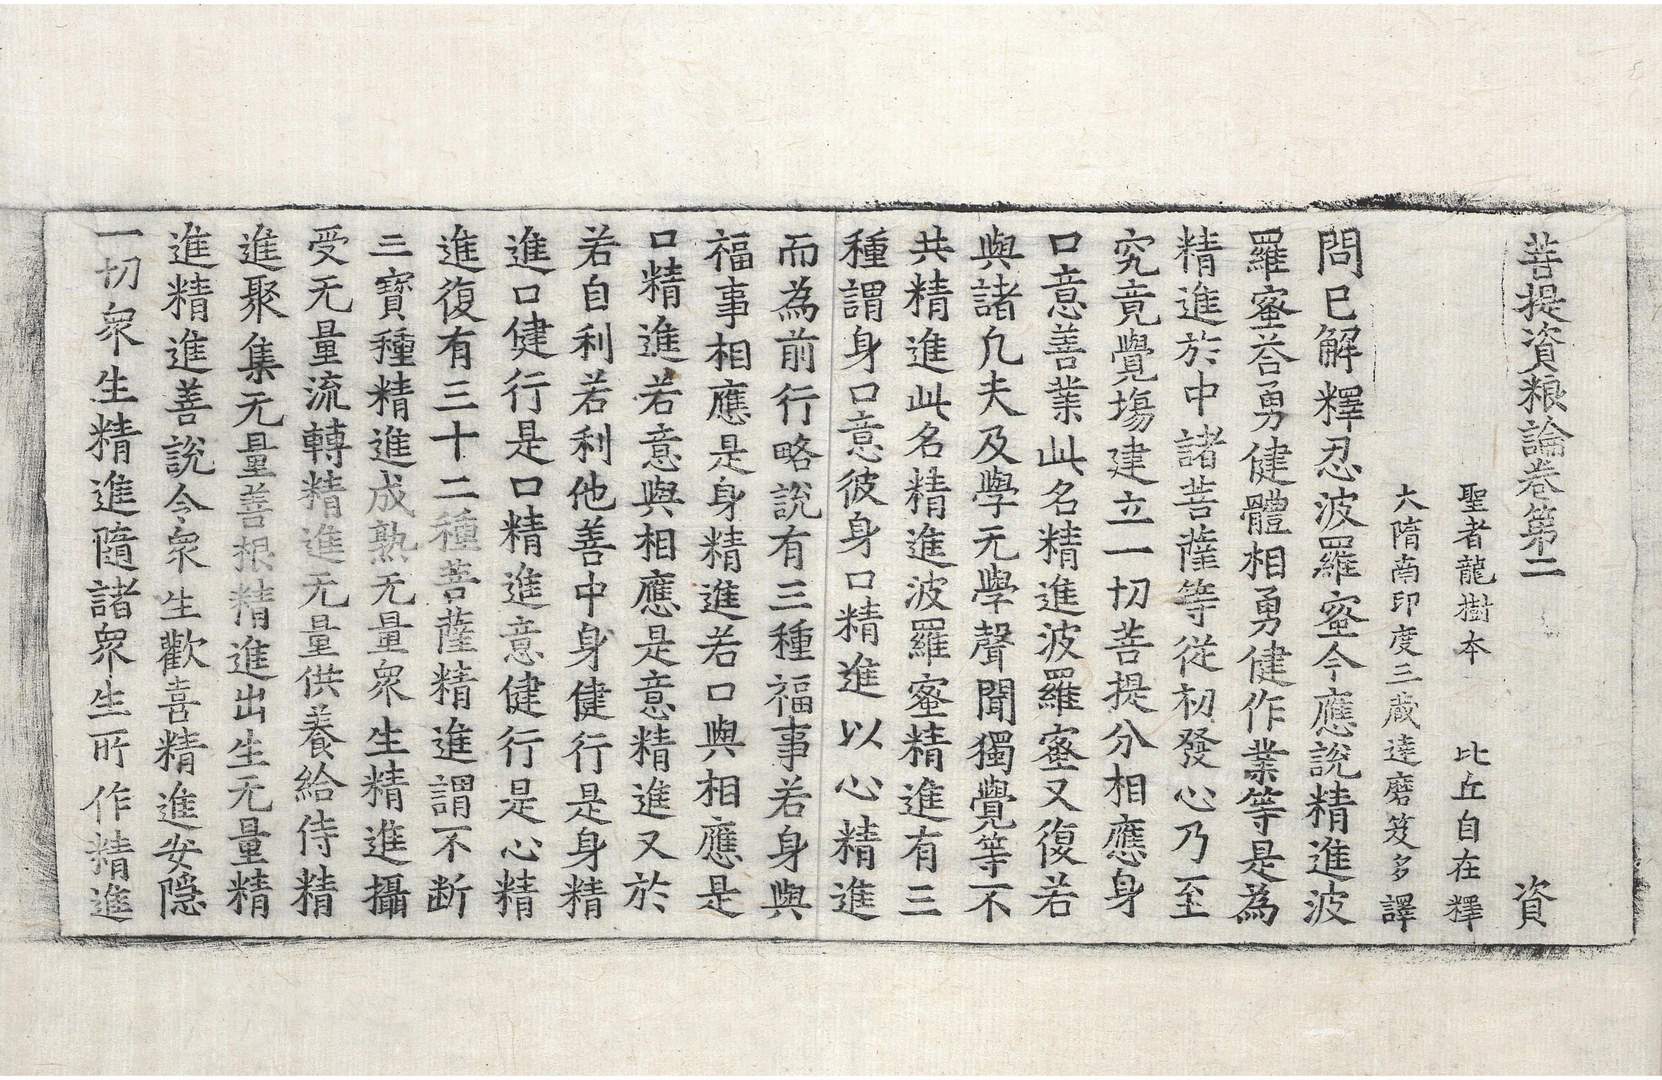 菩提資粮論卷第二 資
聖者龍樹本 比丘自在釋
大隋南印度三藏達磨笈多譯
問已解釋忍波羅蜜今應說精進波
羅蜜荅勇健體相勇健作業等是為
精進於中諸菩薩等從初發心乃至
究竟覺塲建立一切菩提分相應身
口意善業此名精進波羅蜜又復若
與諸凢夫及學无學聲聞獨覺等不
共精進此名精進波羅蜜精進有三
種謂身口意彼身口精進以心精進
而為前行略說有三種福事若身與
福事相應是身精進若口與相應是
口精進若意與相應是意精進又於
若自利若利他善中身健行是身精
進口健行是口精進意健行是心精
進復有三十二種菩薩精進謂不断
三寶種精進成熟无量衆生精進攝
受无量流轉精進无量供養給侍精
進聚集无量善根精進出生无量精
進精進善說令衆生歡喜精進安隱
一切衆生精進隨諸衆生所作精進